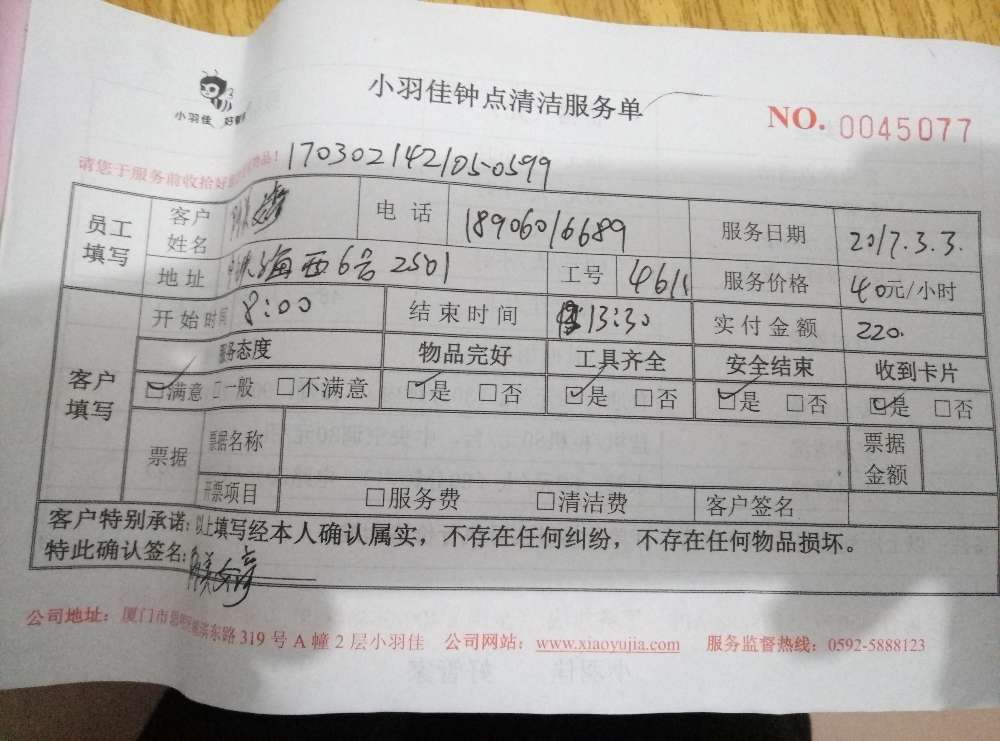 小羽佳 好管家
小羽佳钟点清洁服务单
NO. 0045077
请您于服务前收拾好 物品! 170302142105-0599
员工填写 客户姓名 电话 18906016689 服务日期 2017.3.3.
地址 海西6号2501 工号 4611 服务价格 40元/小时
客户填写 开始时间 8:00 结束时间 13:30 实付金额 220.
服务态度 物品完好 工具齐全 安全结束 收到卡片
☑满意 □一般 □不满意 ☑是 □否 ☑是 □否 ☑是 □否 ☑是 □否
票据 票据名称 票据金额
开票项目 □服务费 □清洁费 客户签名
客户特别承诺:以上填写经本人确认属实，不存在任何纠纷，不存在任何物品损坏。
特此确认签名:
公司地址：厦门市思明区 滨东路319号A幢2层小羽佳 公司网站：www.xiaoyujia.com 服务监督热线：0592-5888123